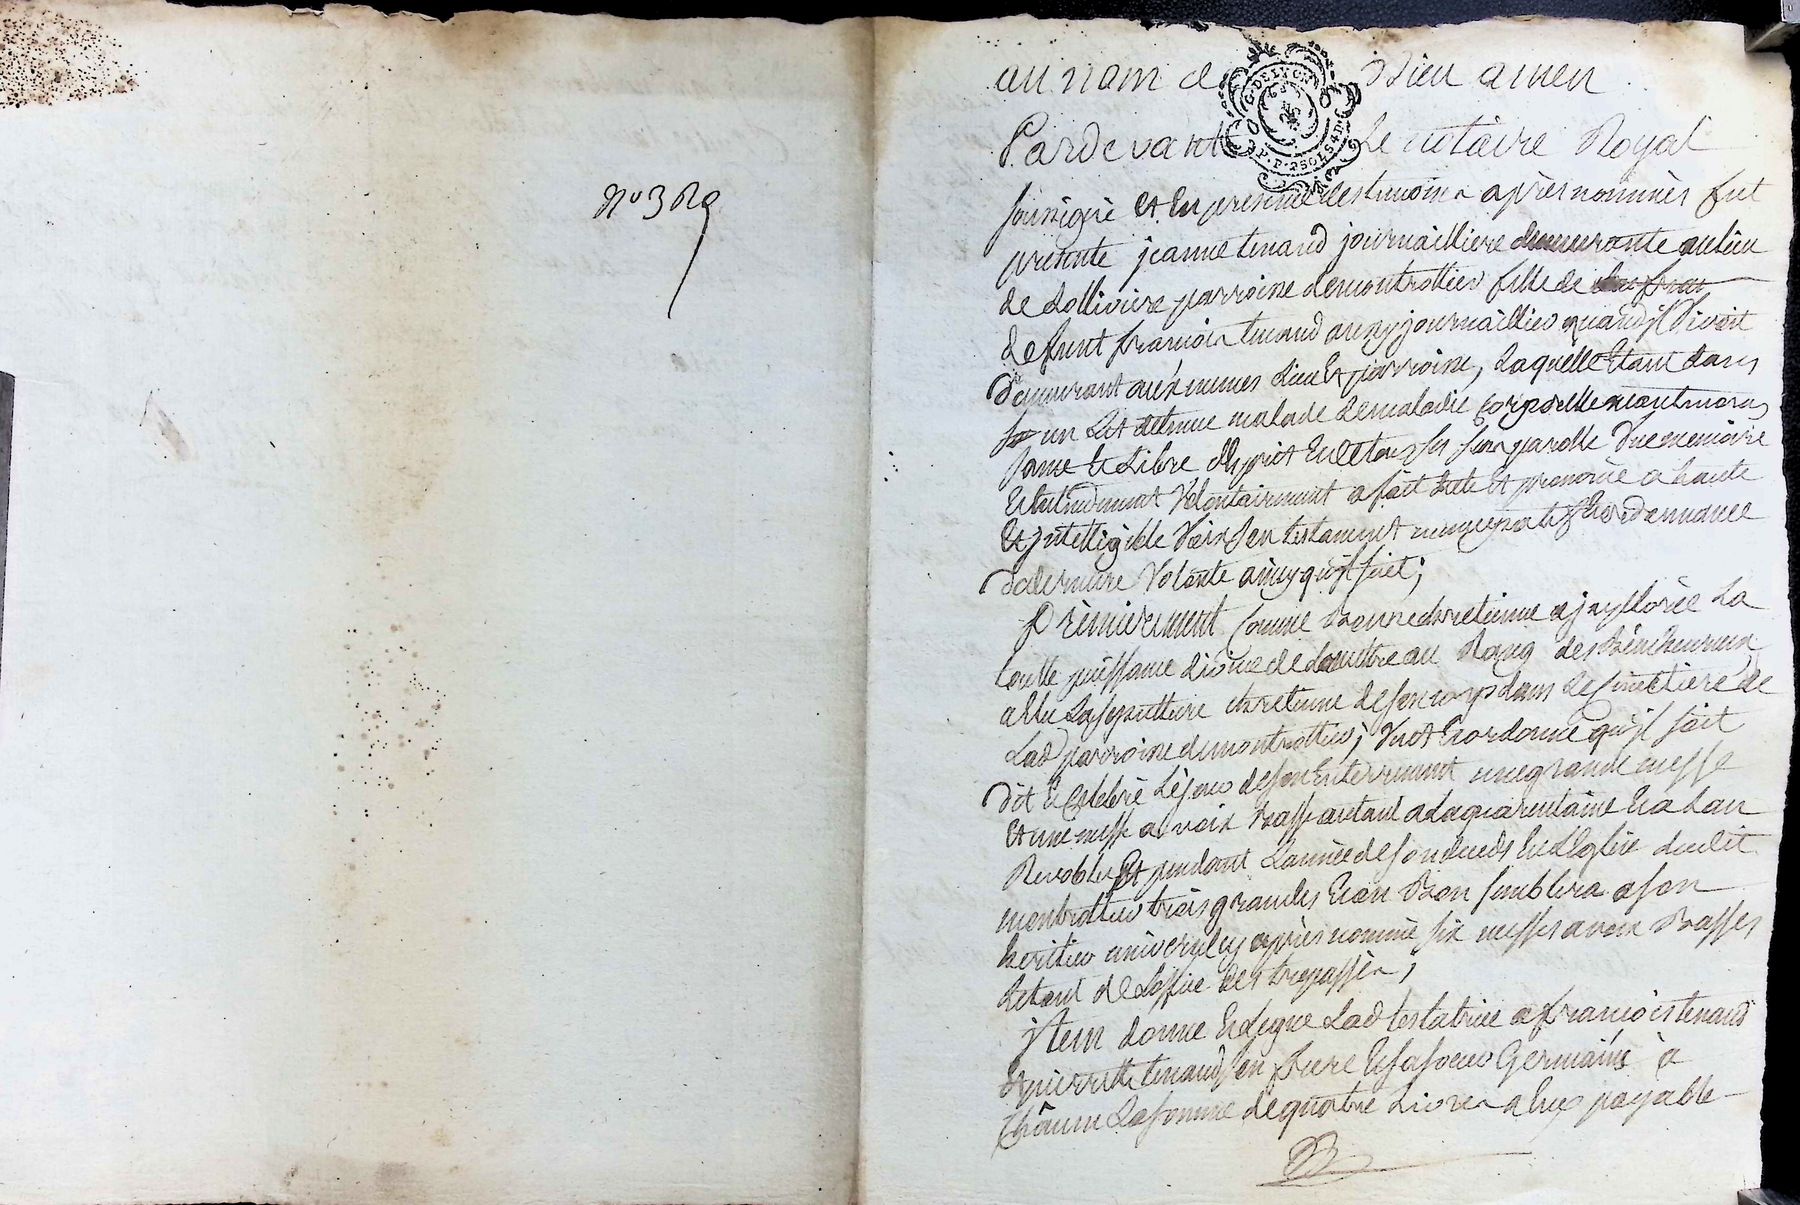 N° 389
au nom de Dieu amen
G. DE LYON
P. P. 2 SOLS 4 D.
Pardevant Le notaire Royal
soussigné et En presence des temoins apres nommès fut
presente jeanne tenaud journailliere demeurante au lieu
de Lollivière parroisse de montrottier fille de
defunt francois tenaud aussy journaillier quand jl Vivoit
demeurant aux mêmes Lieu Et parroisse, Laquelle Etant dans
un Lit detenue malade de maladie Corporelle neantmoins
saine Et Libre d'Esprit En et sa parolle Vue memoire
Et Entendement Volontairement a fait dicté Et prononcé a haute
Et jntelligible Voix son testament nuncupatif Et ordonnance
de derniere Volonté ainsy qujl suit;
Prèmierement Comme Bonne chretienne a jmplorèe La
toutte puissance divine de La mettre au Rang des Bienheureux
a Elu La sepulture chretienne de son corps dans Le simetiere de
Lad parroisse de montrottier; Veut Et ordonne qu'jl soit
dit Et Celebré Le jour de son Enterrement une grande messe
Et une messe a voix Basse autant a La quarantaine Et a Lan
Revolu, Et pendant L'année de son deceds En L'Eglise dudit
montrottier trois grandes Et ou Bon semblera a son
heritier universel cy après nommé six messes a voix Basses
Le tout de L'office des trepassés;
jtem donne Et Legue Lad testatrice a francois tenaud
Et pierrette tenaud son frere Et sa soeur Germains à
Châcun La somme de quatre Livres a Eux payable